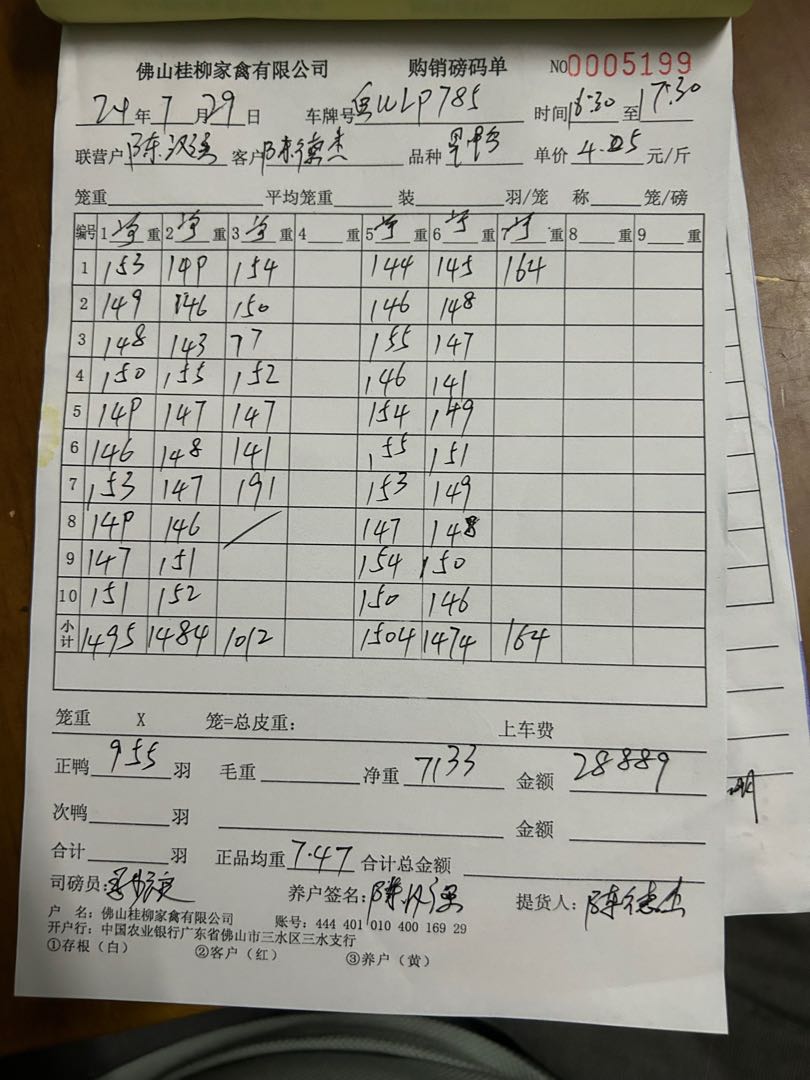 佛山桂柳家禽有限公司 购销磅码单 NO0005199
24年7月29日 车牌号粤WLP785 时间16:30至17:30
联营户陈汉强 客户陈德杰 品种 单价4.05元/斤
笼重 平均笼重 装 羽/笼 称 笼/磅
编号 1净重 2净重 3净重 4重 5净重 6净重 7净重 8重 9重
1 153 149 154 144 145 164
2 149 146 150 146 148
3 148 143 77 155 147
4 150 155 152 146 141
5 149 147 147 154 149
6 146 148 141 155 151
7 153 147 191 153 149
8 149 146 / 147 148
9 147 151 154 150
10 151 152 150 146
小计 1495 1484 1012 1504 1474 164
笼重 X 笼=总皮重: 上车费
正鸭955羽 毛重 净重7133 金额28889
次鸭 羽 金额
合计 羽 正品均重7.47 合计总金额
司磅员: 养户签名:陈汉强 提货人:陈德杰
户 名:佛山桂柳家禽有限公司 账号:444 401 010 400 169 29
开户行:中国农业银行广东省佛山市三水区三水支行
①存根(白) ②客户(红) ③养户(黄)